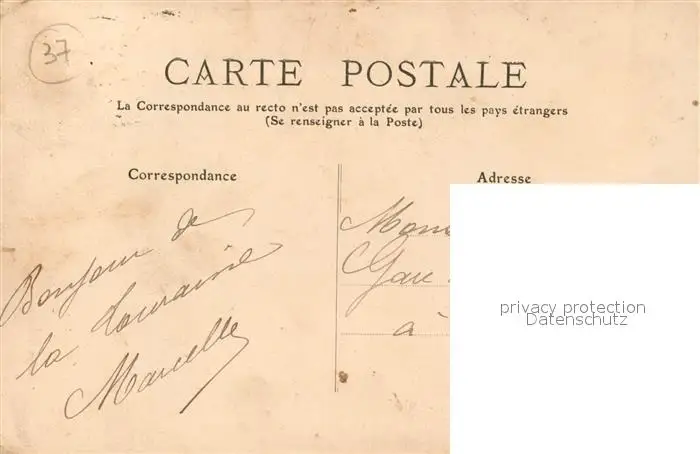 37
CARTE POSTALE
La Correspondance au recto n'est pas acceptée par tous les pays étrangers
(Se renseigner à la Poste)
Correspondance
Adresse
Bonjour de
la Touraine
Marcelle
Gare
à
privacy protection
Datenschutz